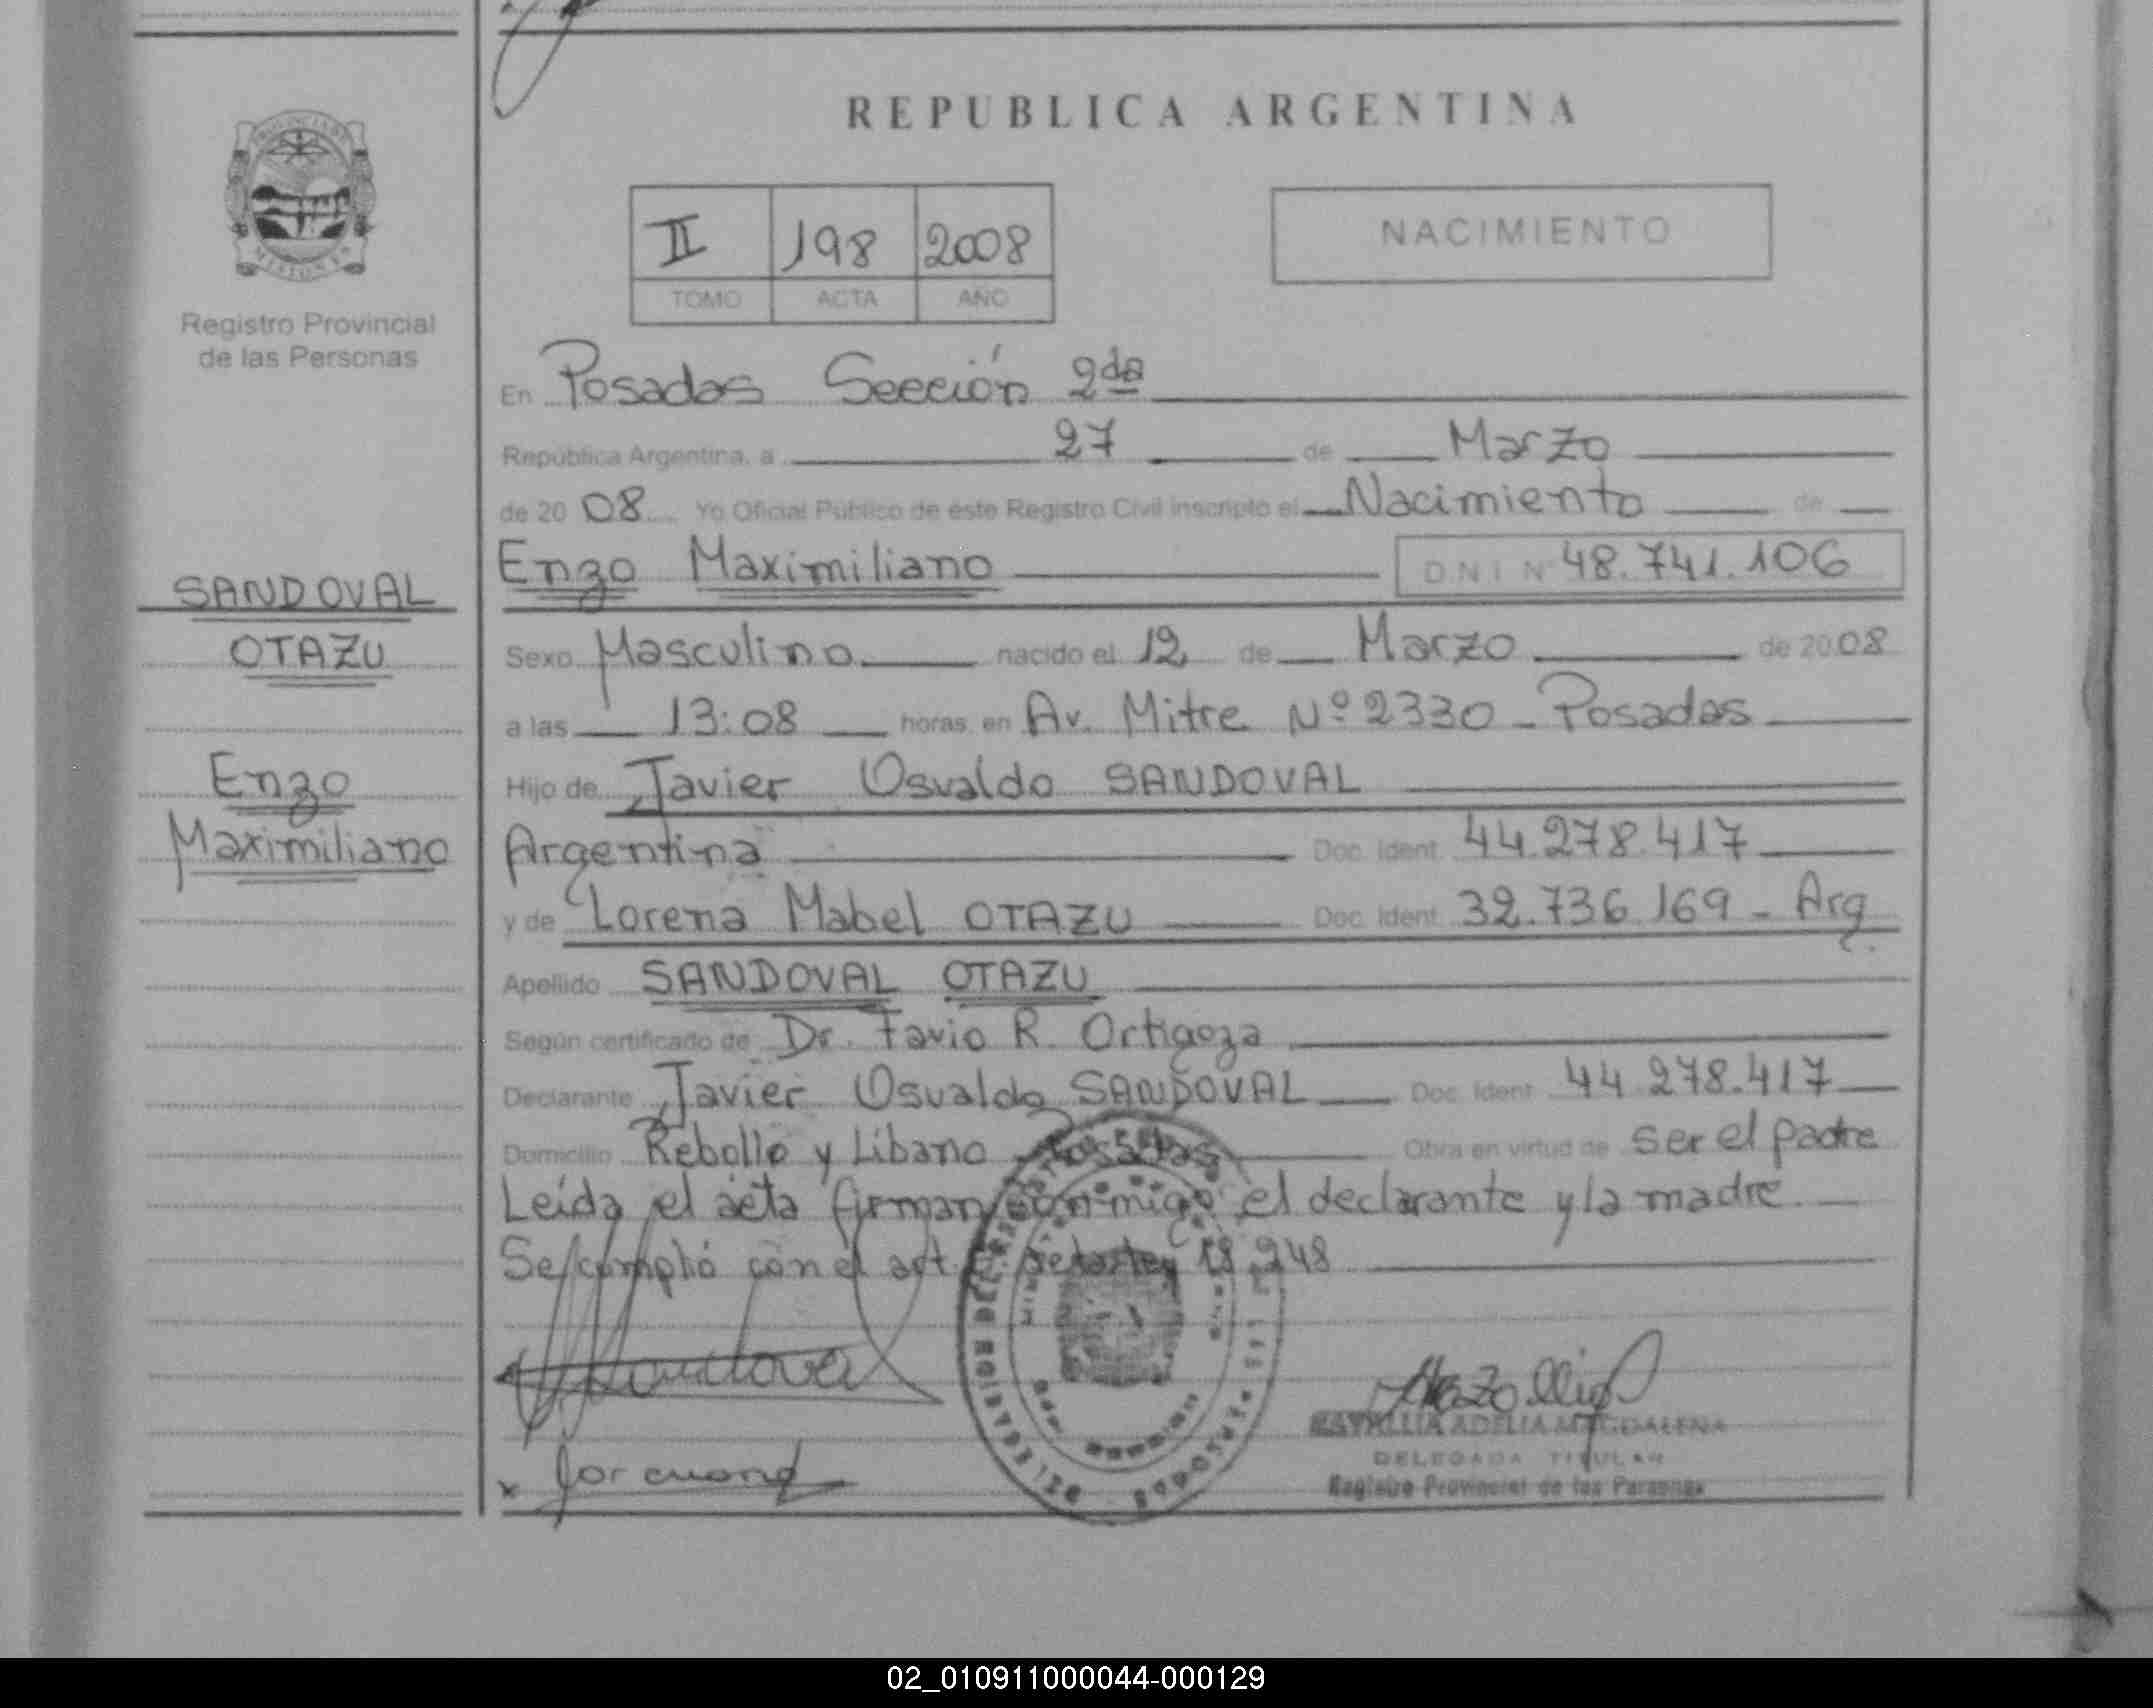 REPUBLICA ARGENTINA
II 198 2008
TOMO ACTA AÑO
NACIMIENTO
Registro Provincial
de las Personas
SANDOVAL
OTAZU
Enzo
Maximiliano
En Posadas Sección 2da
República Argentina, a 27 de Marzo
de 2008 Yo Oficial Público de este Registro Civil inscripto el Nacimiento de
Enzo Maximiliano D.N.I. Nº 48.741.106
Sexo Masculino nacido el 12 de Marzo de 2008
a las 13:08 horas, en Av. Mitre Nº 2330 - Posadas
Hijo de Javier Osvaldo SANDOVAL
Argentina Doc. Ident. 44.278.417
y de Lorena Mabel OTAZU Doc. Ident. 32.736.169 - Arg.
Apellido SANDOVAL OTAZU
Según certificado de Dr. Favio R. Ortigoza
Declarante Javier Osvaldo SANDOVAL Doc. Ident. 44.278.417
Domicilio Rebollo y Líbano Posadas Obra en virtud de ser el padre
Leída el acta firman conmigo el declarante y la madre.
Se cumplió con el art. de la ley 18.248
ADELIA MAGDALENA
DELEGADA TITULAR
Registro Provincial de las Personas
02_010911000044-000129